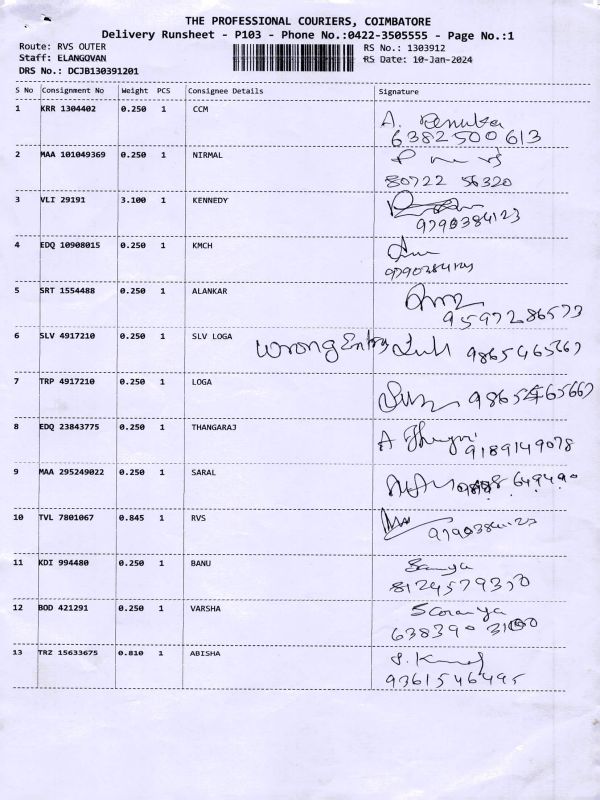 THE PROFESSIONAL COURIERS, COIMBATORE
Delivery Runsheet - P103 - Phone No.:0422-3505555 - Page No.:1
Route: RVS OUTER RS No.: 1303912
Staff: ELANGOVAN RS Date: 10-Jan-2024
DRS No.: DCJB130391201
S No Consignment No Weight PCS Consignee Details Signature
1 KRR 1304402 0.250 1 CCM A. Renuka
6382500613
2 MAA 101049369 0.250 1 NIRMAL
80722 56320
3 VLI 29191 3.100 1 KENNEDY
9790384123
4 EDQ 10908015 0.250 1 KMCH
5 SRT 1554488 0.250 1 ALANKAR
9597286573
6 SLV 4917210 0.250 1 SLV LOGA Wrong Entry
7 TRP 4917210 0.250 1 LOGA
8 EDQ 23843775 0.250 1 THANGARAJ
9189149078
9 MAA 295249022 0.250 1 SARAL
10 TVL 7801067 0.845 1 RVS
11 KDI 994480 0.250 1 BANU
8124579370
12 BOD 421291 0.250 1 VARSHA
13 TRZ 15633675 0.810 1 ABISHA
9361546495